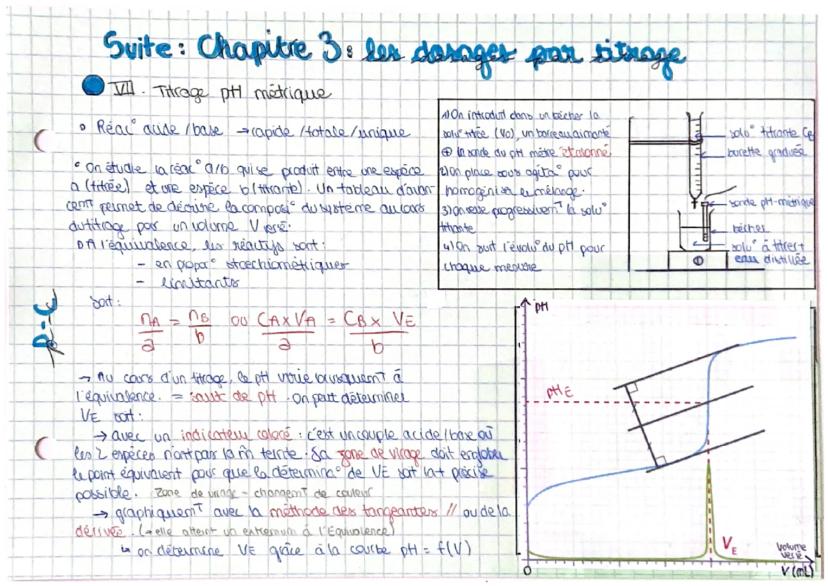 Suite : Chapitre 3 : les dosages par titrage
VII. Titrage pH métrique
Réac° acide/base → rapide/totale/unique
On étudie la réac° a/b qui se produit entre une espèce
a (titrée) et une espèce b (titrante). Un tableau d'avan-
cemt permet de décrire la composi° du système au cours
du titrage par un volume V versé.
À l'équivalence, les réactifs sont :
- en propor° stoechiométriques
- limitants
Soit :
nA/a = nB/b ou CA x VA/a = CB x VE/b
→ Au cours d'un titrage, le pH varie brusquemT à
l'équivalence. = saut de pH. On peut déterminer
VE soit :
→ avec un indicateur coloré : c'est un couple acide/base où
les 2 espèces n'ont pas la m̂ teinte. Sa zone de virage doit englober
le point équivalent pour que la détermina° de VE soit la + précise
possible. Zone de virage = changemT de couleur
→ graphiquemT avec la méthode des tangeantes // ou de la
dérivée. (→ elle atteint un extremum à l'Equivalence)
↳ on détermine VE grâce à la courbe pH = f(V)
1) On introduit dans un bécher la
solu° titrée (V0), un barreau aimanté
⊕ la sonde du pH mètre étalonné
2) On place sous agita° pour
homogénéiser le mélange.
3) On verse progressivemT la solu°
titrante
4) On suit l'évolu° du pH pour
chaque mesure
solu° titrante CB
burette graduée
sonde pH-métrique
bécher
solu° à titrer +
eau distillée
pH
pHE
VE
Volume
versé
V (mL)
0